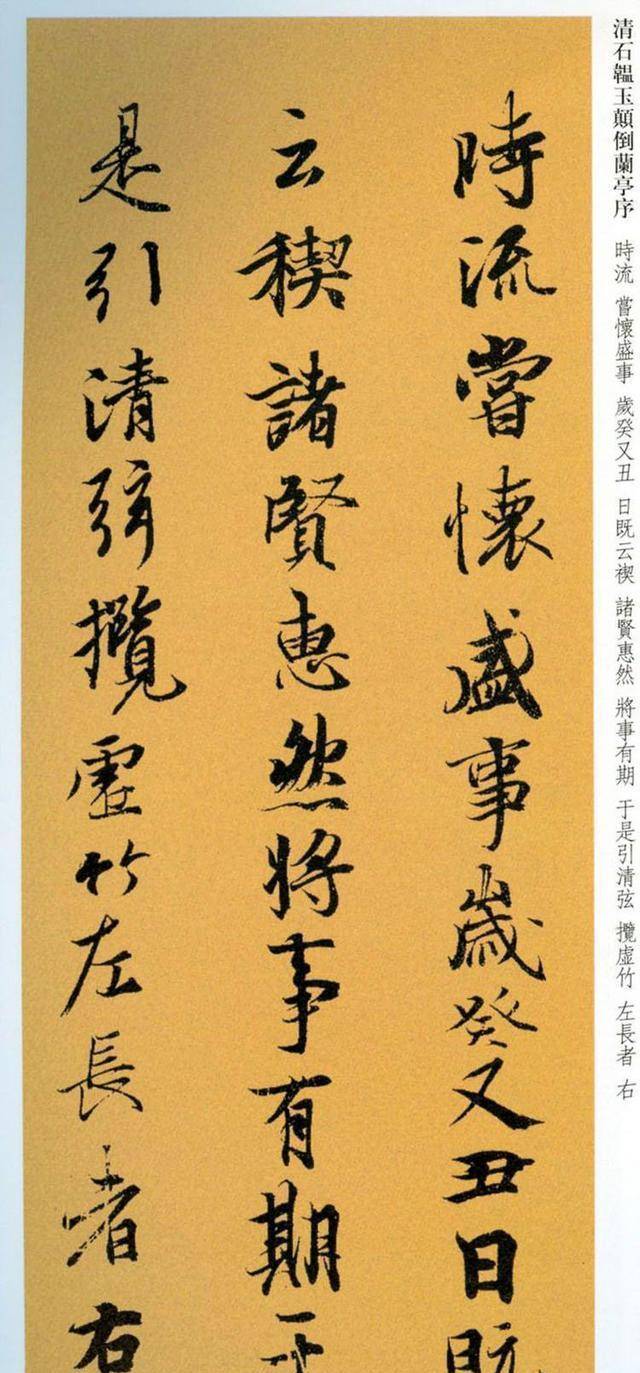 清石韞玉顛倒蘭亭序 時流 嘗懷盛事 歲癸又丑 日既云禊 諸賢惠然 將事有期 于是引清弦 攬虛竹 左長者 右
時流嘗懷盛事歲癸又丑日既
云禊諸賢惠然將事有期于
是引清弦攬虛竹左長者右